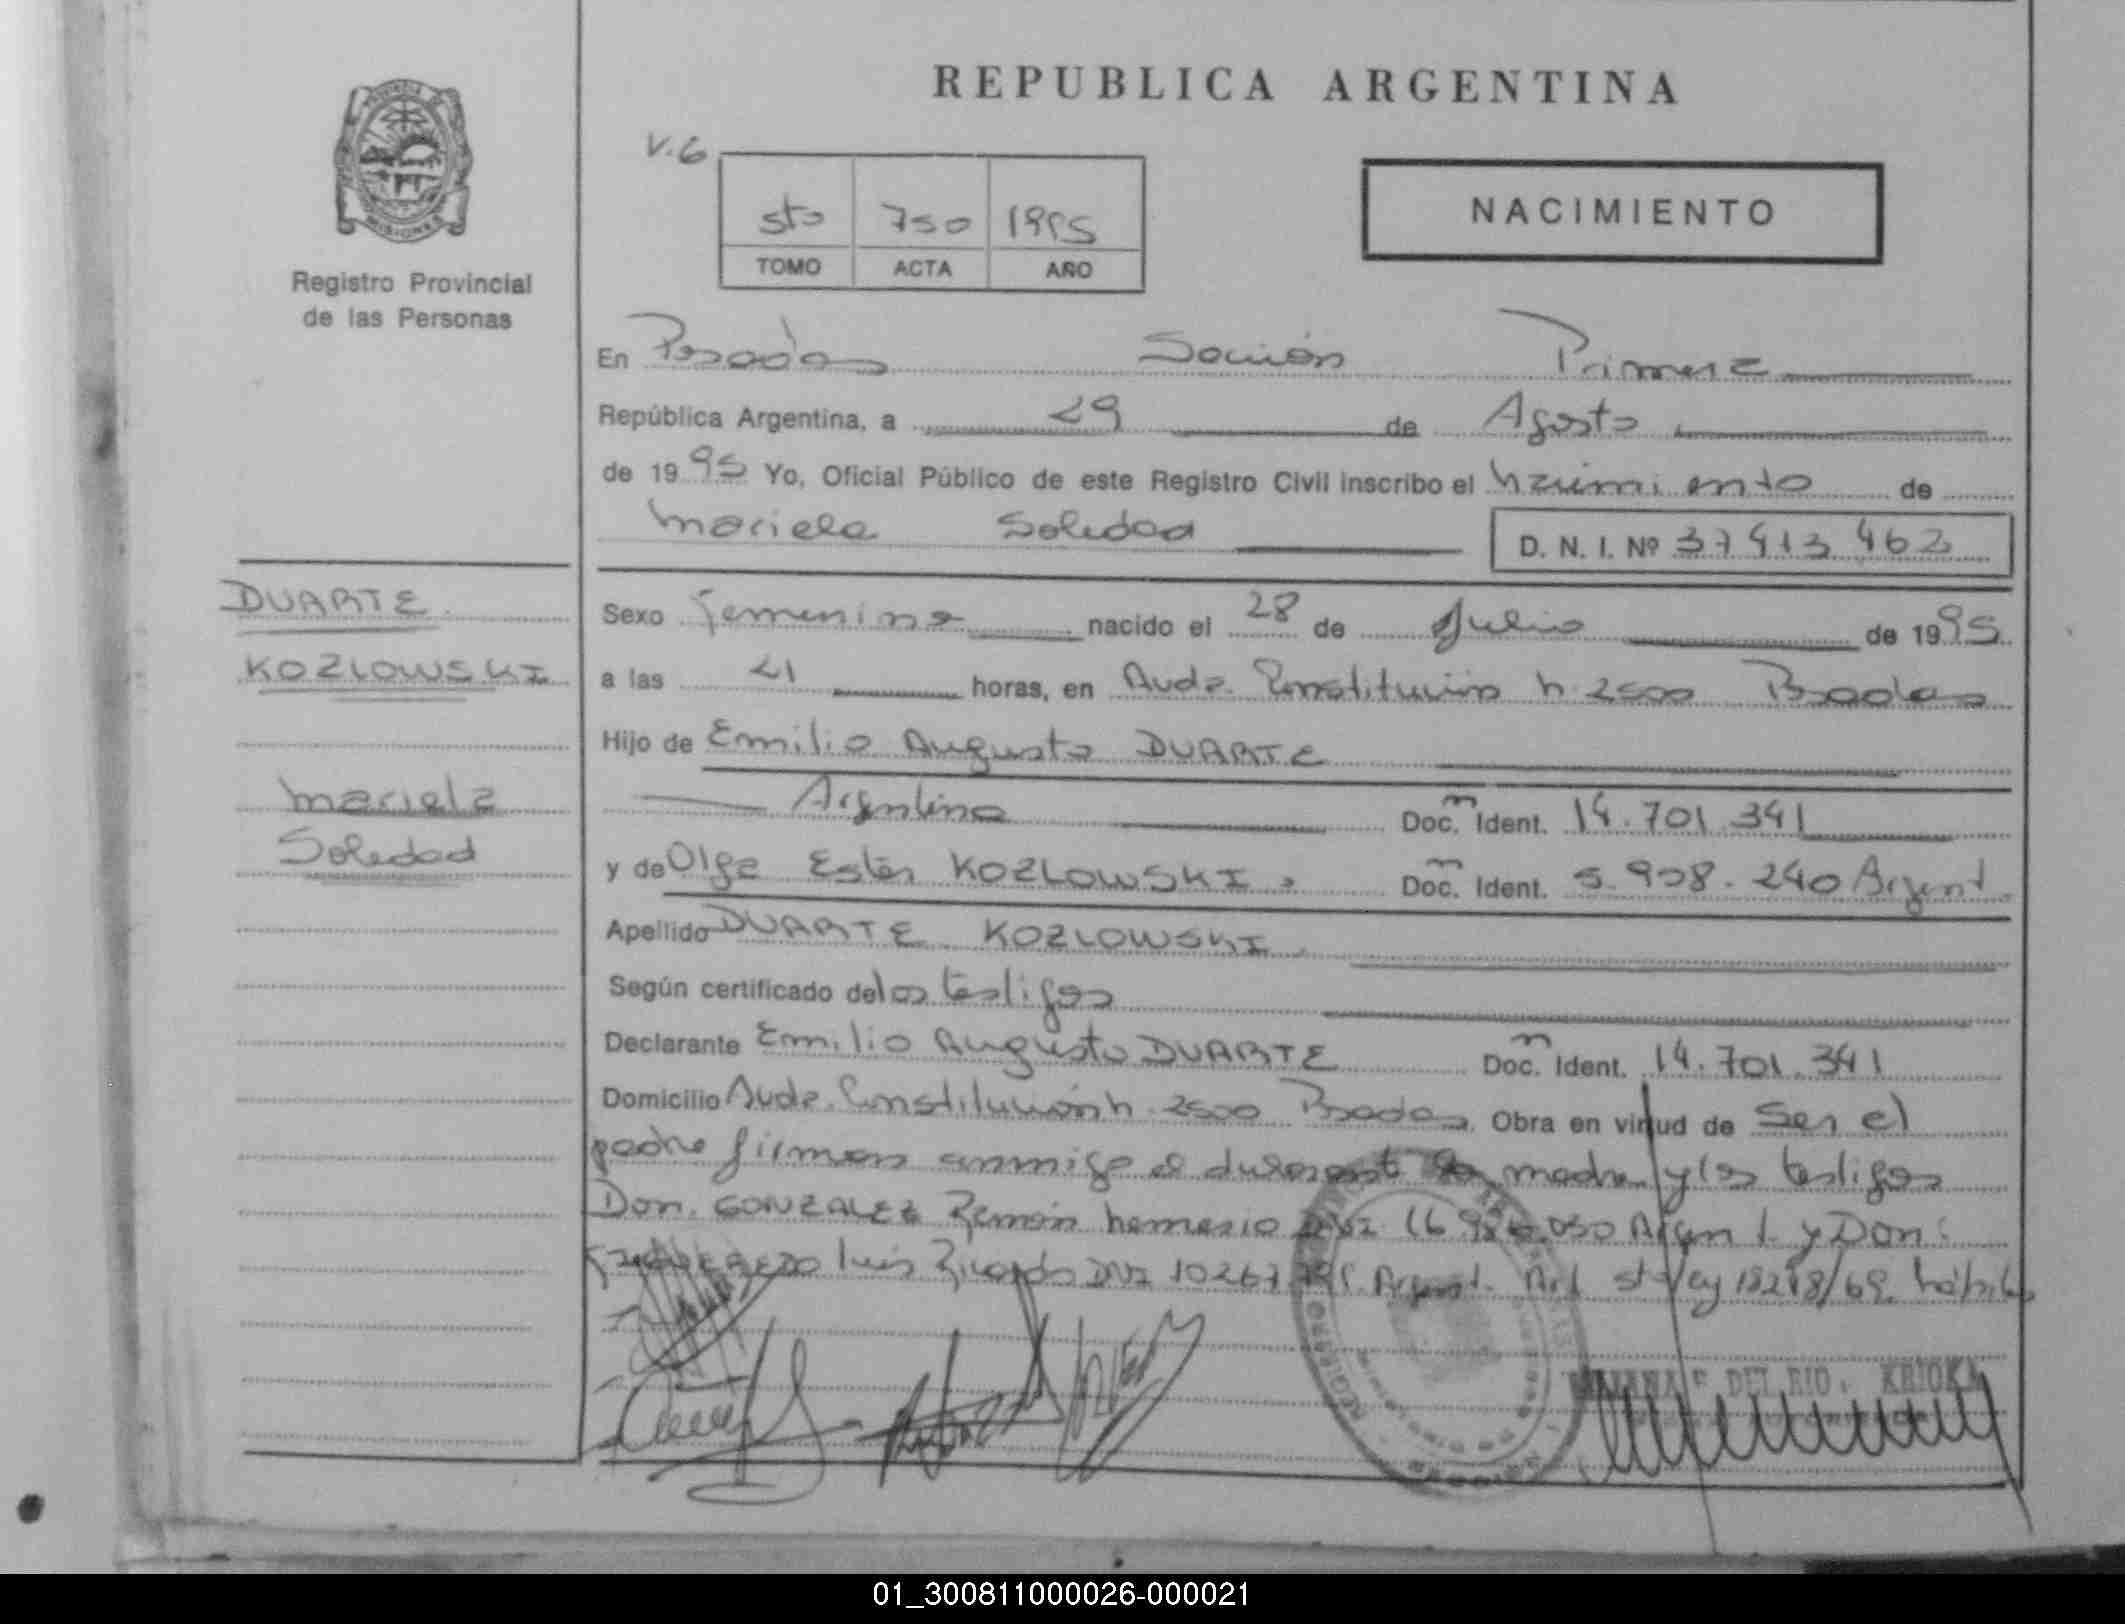 REPUBLICA ARGENTINA
V.6
sto 750 1995
TOMO ACTA AÑO
NACIMIENTO
PROVINCIA DE MISIONES
Registro Provincial
de las Personas
En Posadas Sección Primera
República Argentina, a 29 de Agosto
de 1995 Yo, Oficial Público de este Registro Civil inscribo el nacimiento de
Mariela Soledad D. N. I. Nº 37.413.462
DUARTE
KOZLOWSKI
Mariela
Soledad
Sexo femenino nacido el 28 de Julio de 1995
a las 21 horas, en Avda. Constitución n. 2500 Posadas
Hijo de Emilio Augusto DUARTE
Argentino Doc. Ident. 14.701.341
y de Olga Ester KOZLOWSKI. Doc. Ident. 5.908.240 Argent.
Apellido DUARTE KOZLOWSKI
Según certificado de los testigos
Declarante Emilio Augusto DUARTE Doc. Ident. 14.701.341
Domicilio Avda. Constitución n. 2500 Posadas. Obra en virtud de Ser el
padre firman conmigo el madre y los testigos
Don. GONZALEZ Ramón nemesio DNI 16.986.050 Argent. y Don:
Luis Ricardo DNI 10267 Argent. Art. ley 18248/69.
DEL RIO.
01_300811000026-000021